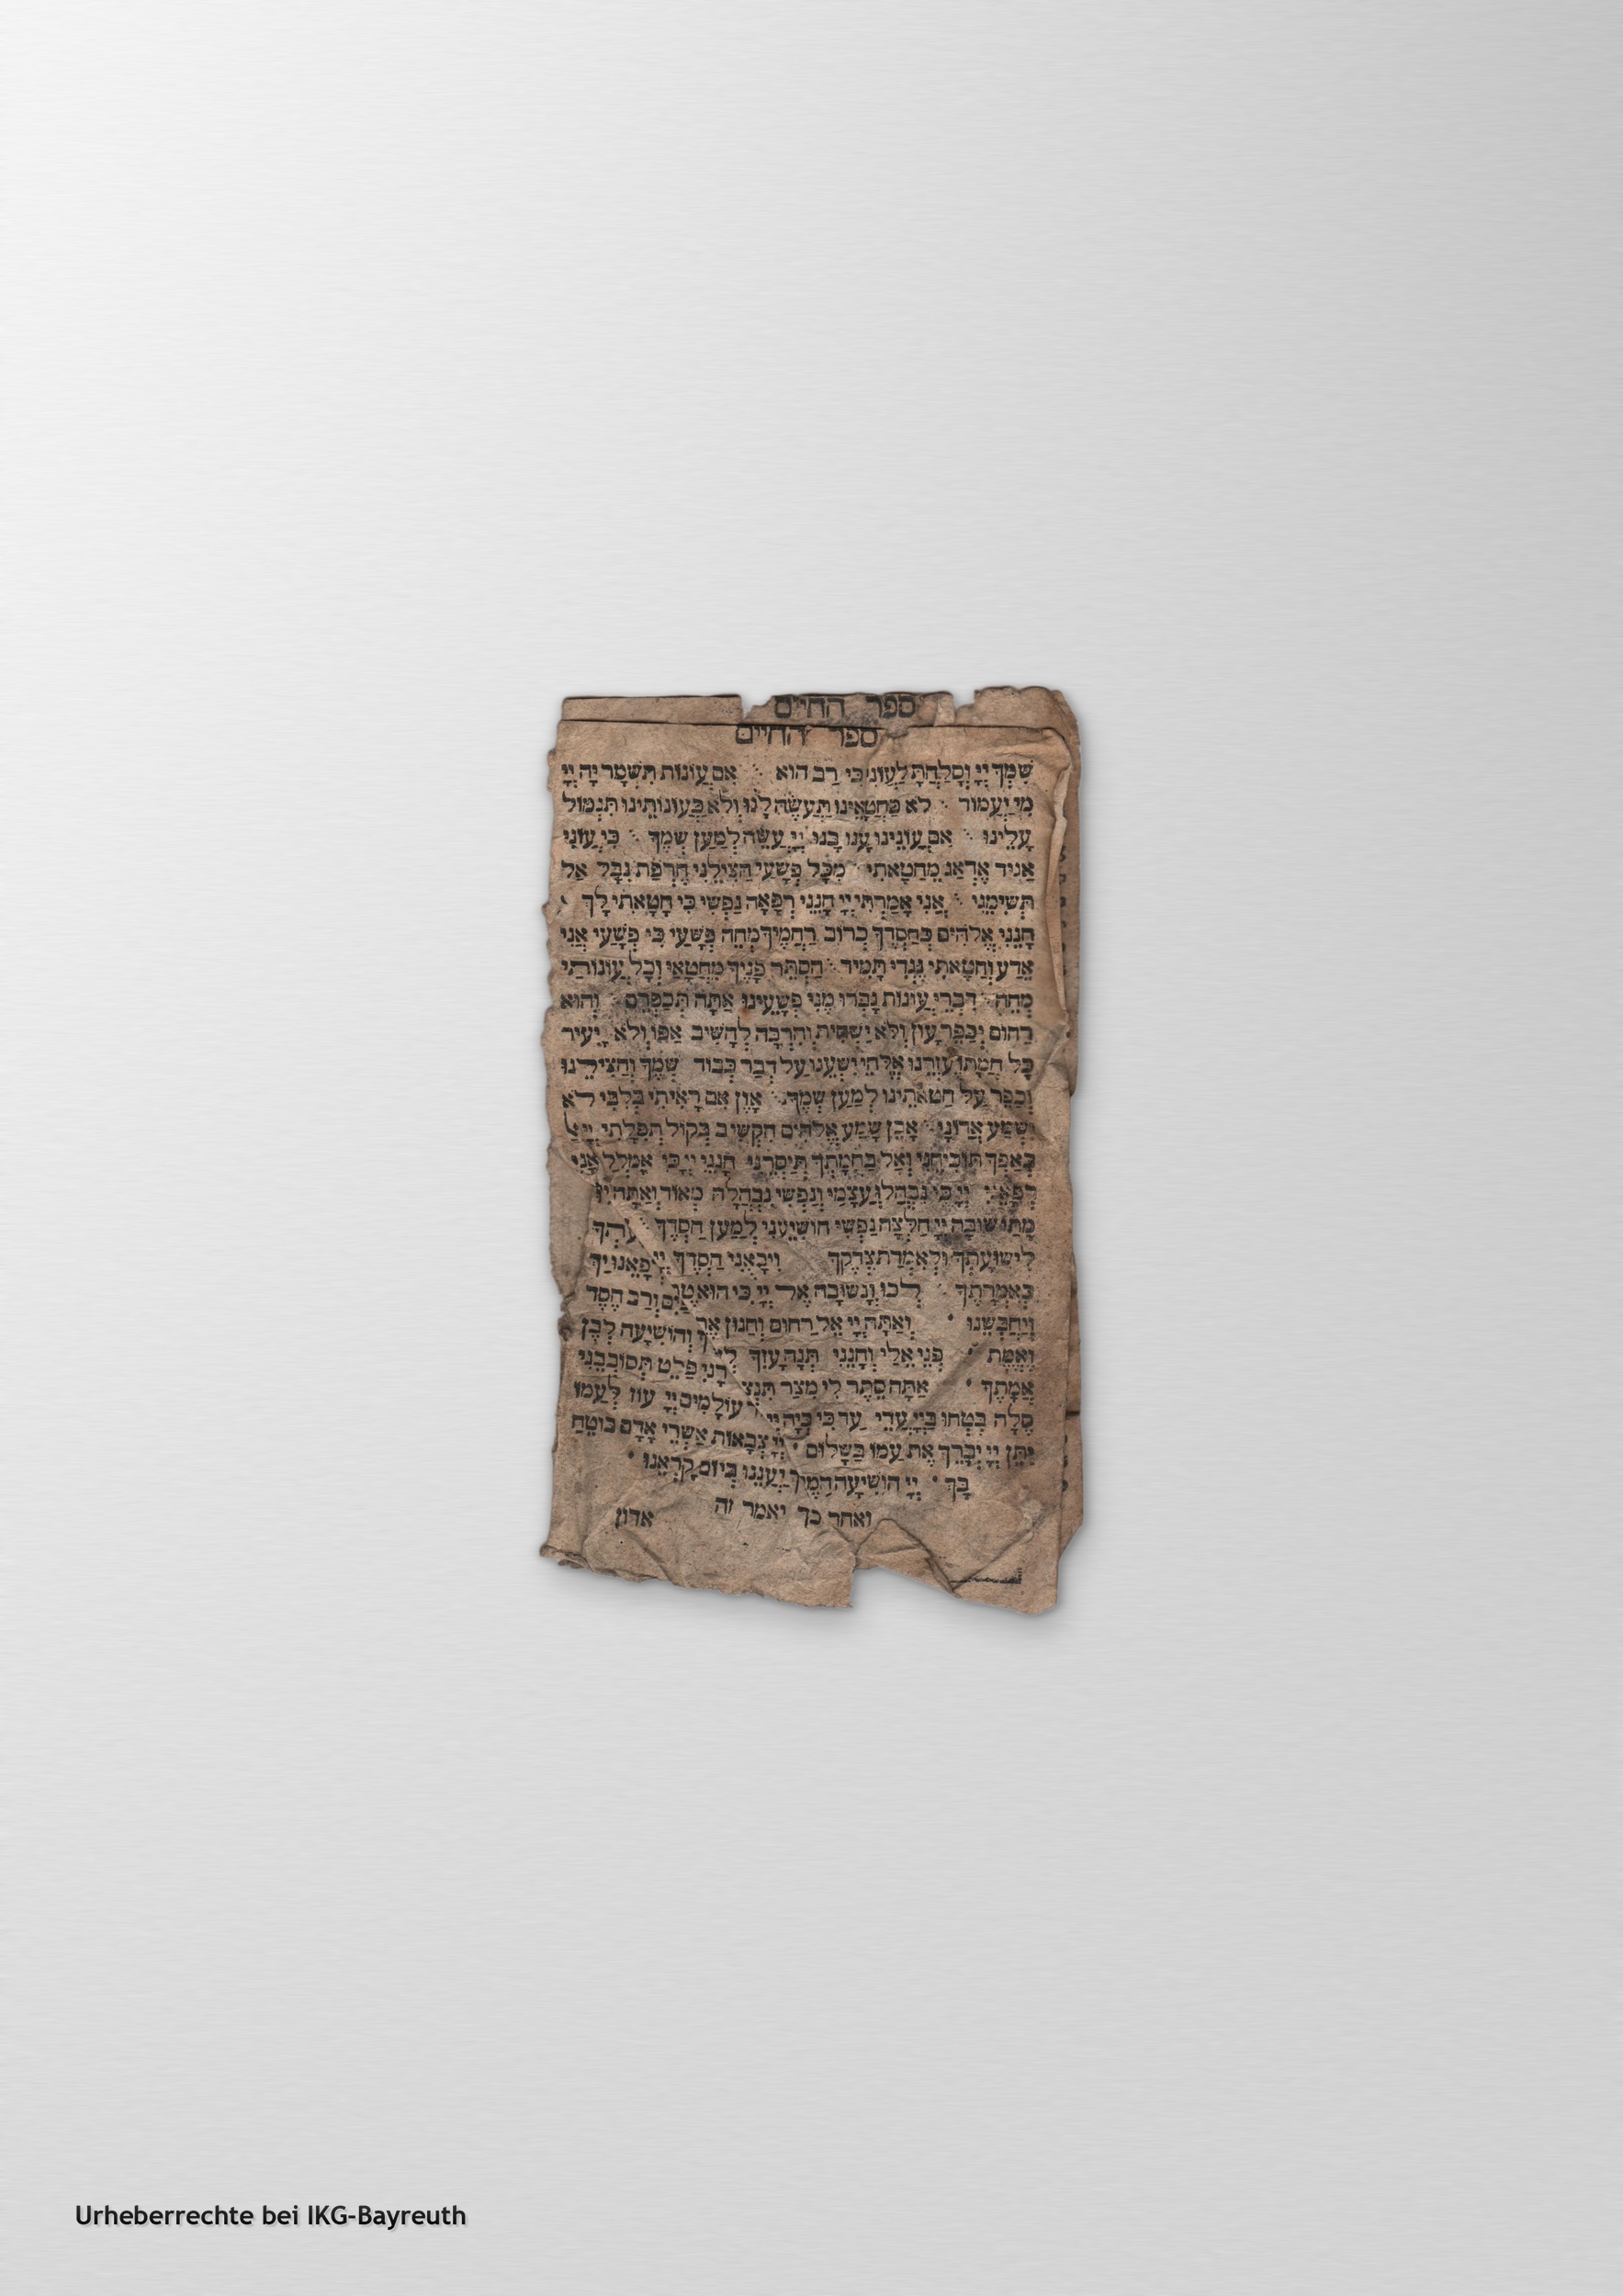 ספר החיים
ספר החיים
שִׁמְךָ יְיָ וְסָלַחְתָּ לַעֲוֹנִי כִּי רַב הוּא אִם עֲוֹנוֹת תִּשְׁמָר יָהּ יְיָ
מִי יַעֲמוֹד לֹא כַּחֲטָאֵינוּ תַּעֲשֶׂה לָנוּ וְלֹא כַּעֲוֹנוֹתֵינוּ תִּגְמוֹל
עָלֵינוּ אִם עֲוֹנֵינוּ עָנוּ בָנוּ יְיָ עֲשֵׂה לְמַעַן שְׁמֶךָ כִּי עֲוֹנִי
אַגִּיד אֶדְאַג מֵחַטָּאתִי מִכָּל פְּשָׁעַי הַצִּילֵנִי חֶרְפַּת נָבָל אַל
תְּשִׂימֵנִי אֲנִי אָמַרְתִּי יְיָ חָנֵּנִי רְפָאָה נַפְשִׁי כִּי חָטָאתִי לָךְ
חָנֵּנִי אֱלֹהִים כְּחַסְדֶּךָ כְּרוֹב רַחֲמֶיךָ מְחֵה פְשָׁעָי כִּי פְשָׁעַי אֲנִי
אֵדַע וְחַטָּאתִי נֶגְדִּי תָמִיד הַסְתֵּר פָּנֶיךָ מֵחֲטָאָי וְכָל עֲוֹנוֹתַי
מְחֵה דִּבְרֵי עֲוֹנוֹת גָּבְרוּ מֶנִּי פְּשָׁעֵינוּ אַתָּה תְכַפְּרֵם וְהוּא
רַחוּם יְכַפֵּר עָוֹן וְלֹא יַשְׁחִית וְהִרְבָּה לְהָשִׁיב אַפּוֹ וְלֹא יָעִיר
כָּל חֲמָתוֹ עָזְרֵנוּ אֱלֹהֵי יִשְׁעֵנוּ עַל דְּבַר כְּבוֹד שְׁמֶךָ וְהַצִּילֵנוּ
וְכַפֵּר עַל חַטֹּאתֵינוּ לְמַעַן שְׁמֶךָ אָוֶן אִם רָאִיתִי בְלִבִּי לֹא
יִשְׁמַע אֲדוֹנָי אָכֵן שָׁמַע אֱלֹהִים הִקְשִׁיב בְּקוֹל תְּפִלָּתִי יְיָ
בְּאַפְּךָ תוֹכִיחֵנִי וְאַל בַּחֲמָתְךָ תְיַסְּרֵנִי חָנֵּנִי יְיָ כִּי אֻמְלַל אָנִי
רְפָאֵנִי יְיָ כִּי נִבְהֲלוּ עֲצָמָי וְנַפְשִׁי נִבְהֲלָה מְאוֹד וְאַתָּה יְיָ
מָתַי שׁוּבָה יְיָ חַלְּצָה נַפְשִׁי הוֹשִׁיעֵנִי לְמַעַן חַסְדֶּךָ
לִישׁוּעָתֶךָ וּלְאִמְרַת צִדְקֶךָ וִיבֹאֻנִי חֲסָדֶךָ יְיָ
כְּאִמְרָתֶךָ לְכוּ וְנָשׁוּבָה אֶל יְיָ כִּי הוּא וְרַב חֶסֶד
וְיַחְבְּשֵׁנוּ וְאַתָּה יְיָ אֵל רַחוּם וְחַנּוּן וְהוֹשִׁיעָה לְבֶן
וֶאֱמֶת פְּנֵה אֵלַי וְחָנֵּנִי תְּנָה עֻזְּךָ רָנֵּי פַלֵּט תְּסוֹבְבֵנִי
אֲמָתֶךָ אַתָּה סֵתֶר לִי מִצַּר עוֹלָמִים יְיָ עוֹז לְעַמּוֹ
סֶלָה בִּטְחוּ בַיְיָ עֲדֵי עַד כִּי בְּיָהּ יְיָ צְבָאוֹת אַשְׁרֵי אָדָם בּוֹטֵחַ
יִתֵּן יְיָ יְבָרֵךְ אֶת עַמּוֹ בַשָּׁלוֹם
בָּךְ יְיָ הוֹשִׁיעָה הַמֶּלֶךְ יַעֲנֵנוּ בְיוֹם קָרְאֵנוּ
ואחר כך יאמר זה
אדון
Urheberrechte bei IKG-Bayreuth